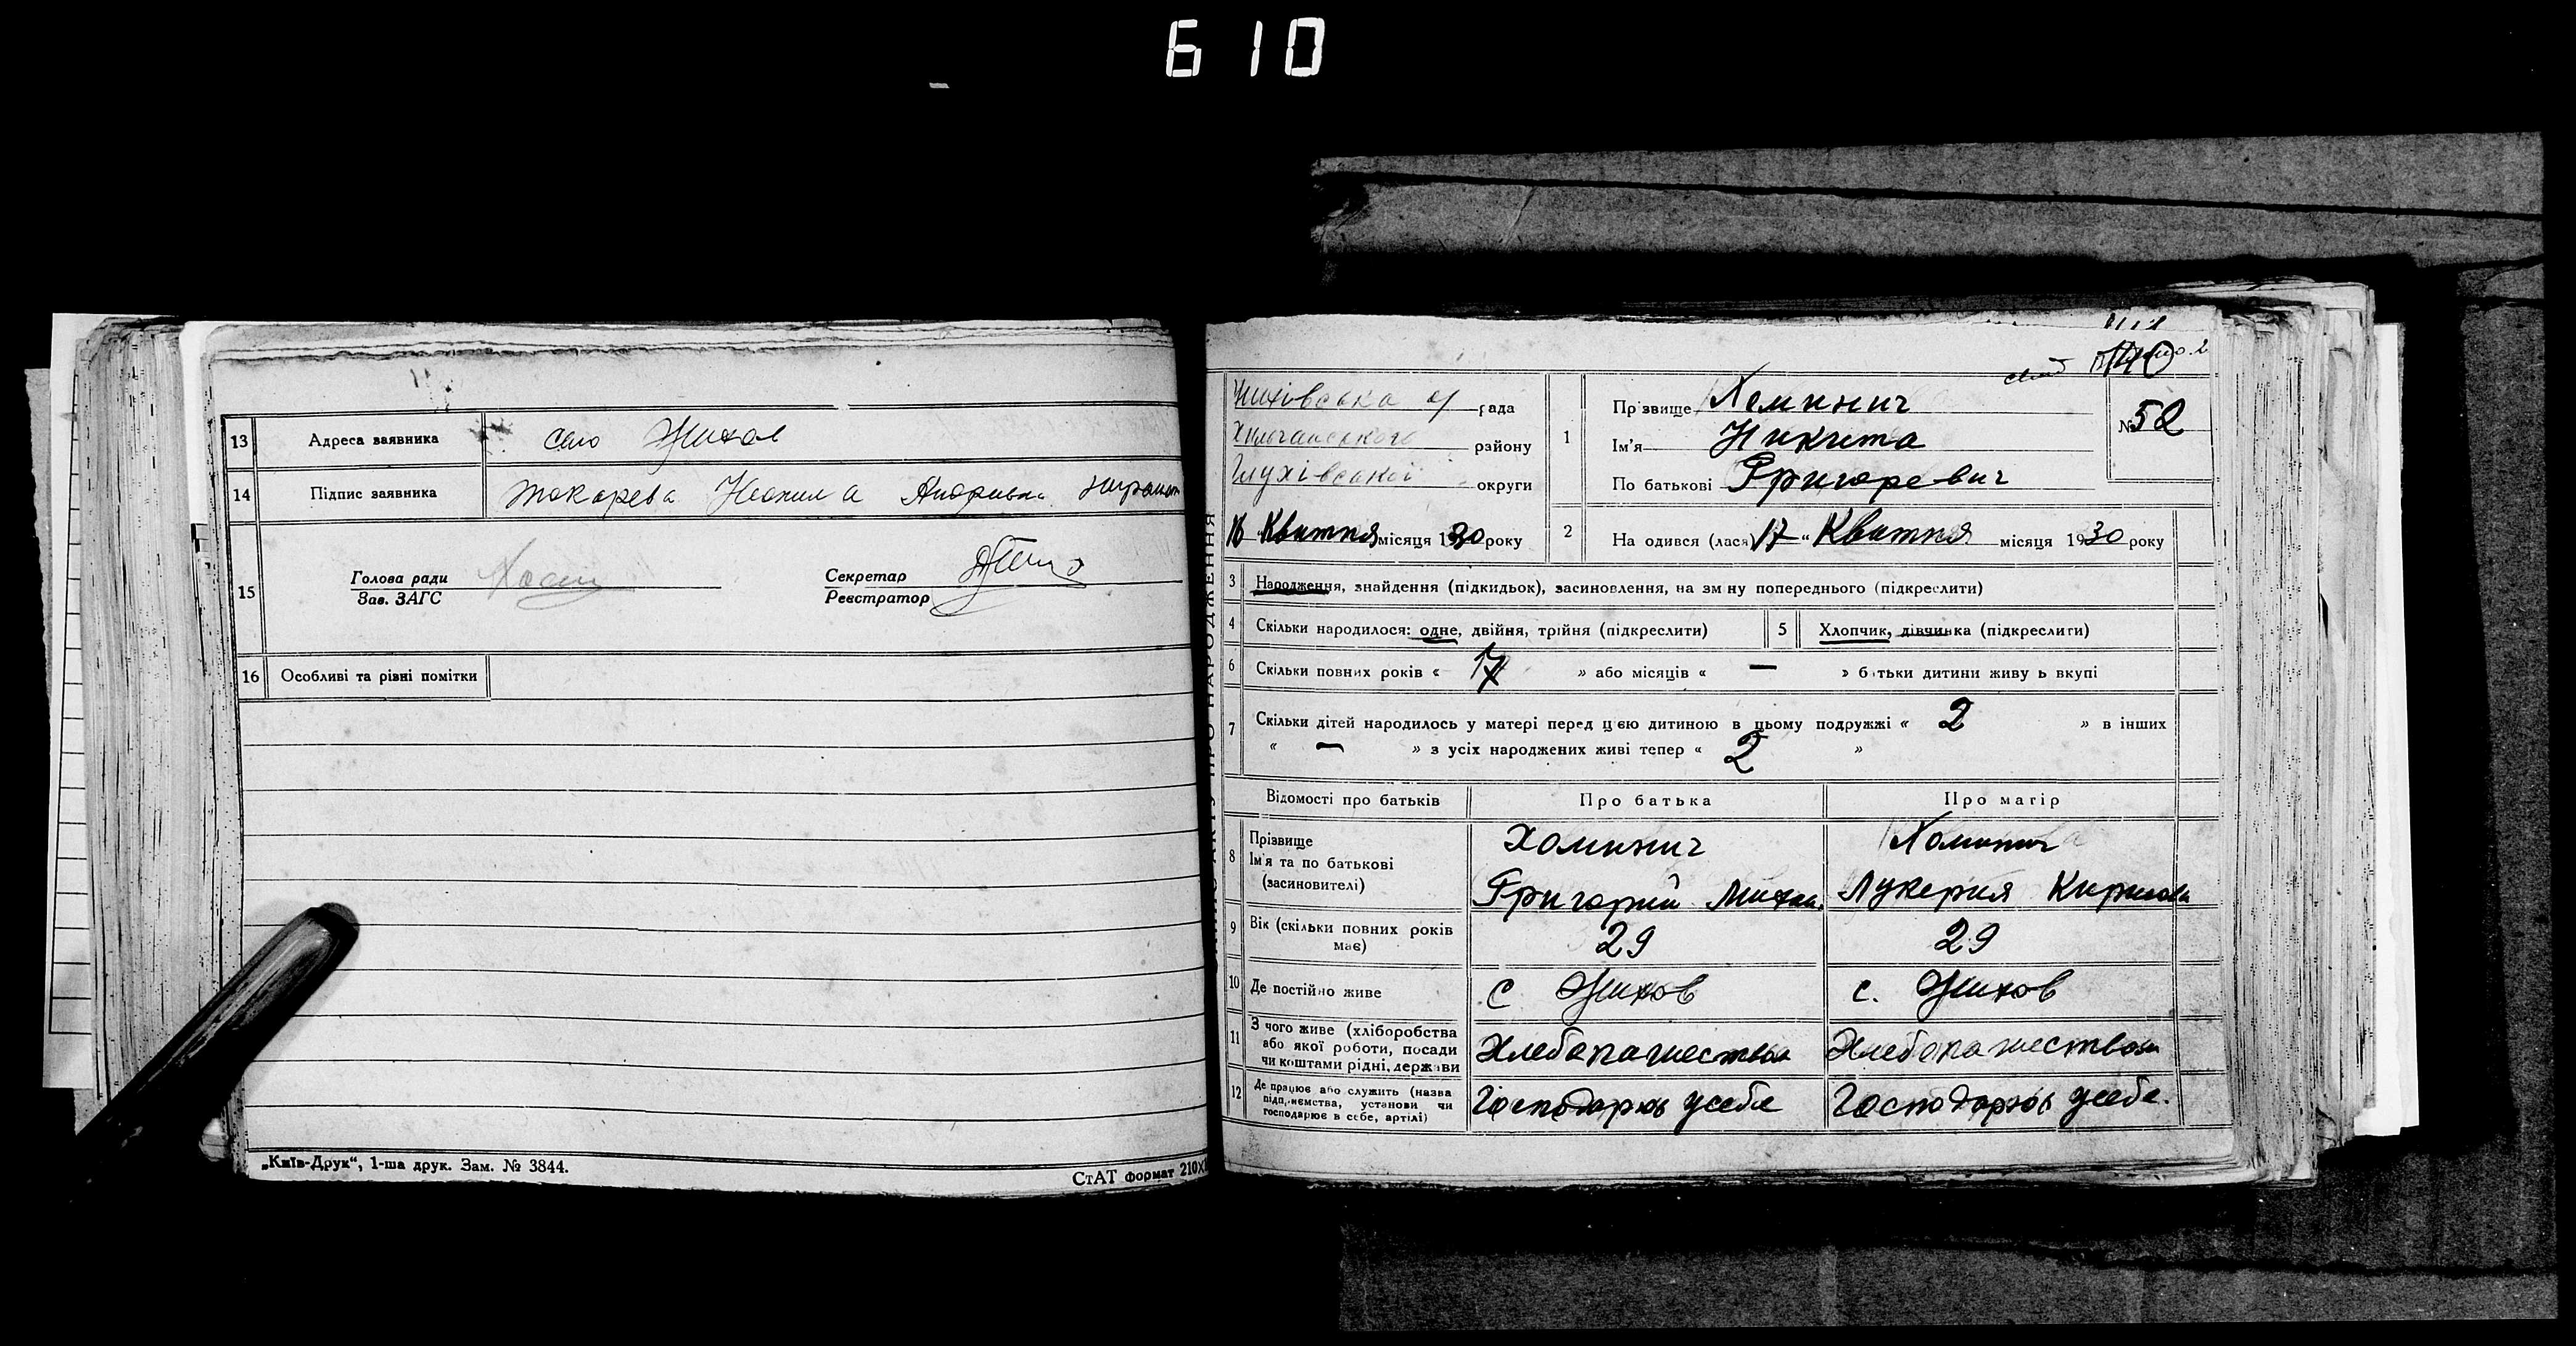 610
13 Адреса заявника село Жихов
14 Підпис заявника Токарева
15 Голова ради
Зав. ЗАГС
Секретар
Реєстратор
16 Особливі та різні помітки
„Київ-Друк“, 1-ша друк. Зам. № 3844.
СтАТ формат 210×
140
Жихівська рада
району
Глухівської округи
18 Квитня місяця 1930 року
1 Прізвище Хоминич
Ім'я Никита
По батькові Григоревич
№ 52
2 На одився (лася) 17 „ Квитня місяця 1930 року
3 Народження, знайдення (підкидьок), засиновлення, на зм ну попереднього (підкреслити)
4 Скільки народилося: одне, двійня, трійня (підкреслити) 5 Хлопчик, дівчинка (підкреслити)
6 Скільки повних років « » або місяців « — » б тьки дитини живу ь вкупі
7 Скільки дітей народилось у матері перед цєю дитиною в цьому подружжі « 2 » в інших
« — » з усіх народжених живі тепер « 2 »
Відомості про батьків Про батька Про матір
8 Прізвище
Ім'я та по батькові
(засиновителі)
Хоминич
Григорий Михаи.
Хоминич
Лукерия
9 Вік (скільки повних років
має)
29 29
10 Де постійно живе с Жихов с. Жихов
11 З чого живе (хліборобства
або якої роботи, посади
чи коштами рідні, держави
Хлебопашеством Хлебопашеством
12 Де працює або служить (назва
підприємства, установи чи
господарює в себе, артілі)
Господарює усебе Господарює усебе.